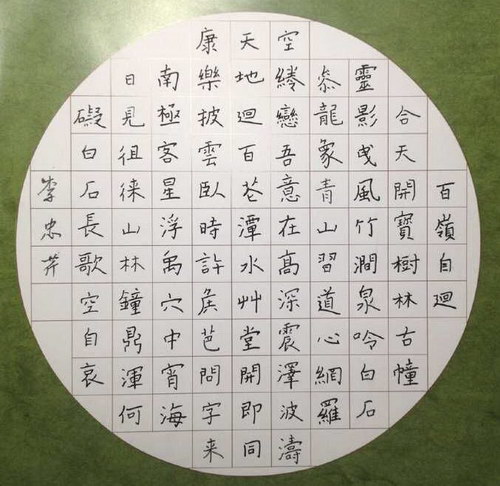 百嶺自迴
合天開寶樹林古幢
靈影曳風竹澗泉吟白石
忝龍象青山習道心網羅
空綣戀吾意在高深震澤波濤
天地迴百芲潭水艸堂開即同
康樂披雲臥時許矦芭問字来
南極客星浮禹穴中宵海
日見徂徠山林鐘鼎渾何
礙白石長歌空自哀
李忠芹